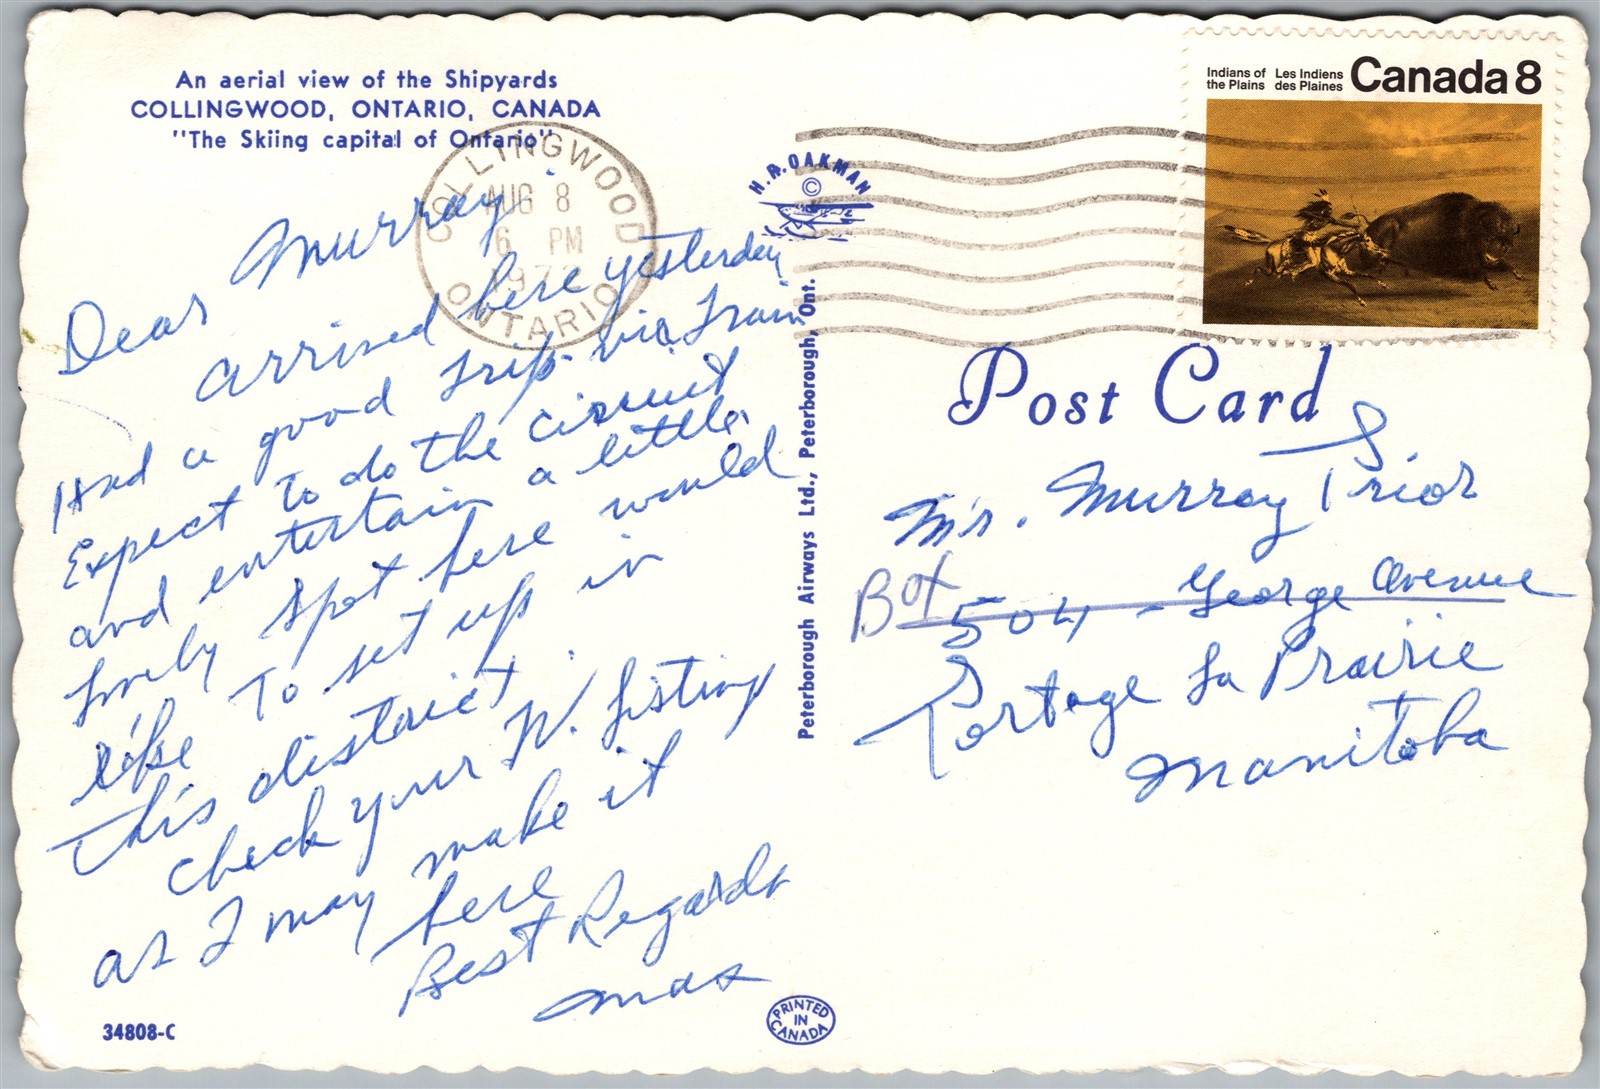 An aerial view of the Shipyards
COLLINGWOOD, ONTARIO, CANADA
"The Skiing capital of Ontario"
COLLINGWOOD
AUG 8
6 PM
197
ONTARIO
Dear Murray,
arrived here yesterday
Had a good trip via Train
Expect To do the circuit
and entertain a little.
lovely spot here would
like To set up in
This district.
check your W. listing
as I may make it
here
Best Regards
Max
34808-C
H.R. OAKMAN
©
Peterborough Airways Ltd., Peterborough, Ont.
PRINTED
IN
CANADA
Indians of the Plains
Les Indiens des Plaines
Canada 8
Post Card
Mr. Murray Prior
Box 504 - George Avenue
Portage La Prairie
Manitoba